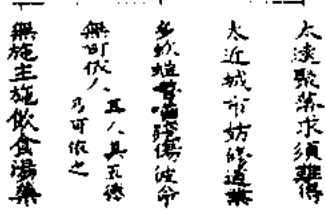 太遠聚落求須難得
太近城市妨修道業
多蚊傷彼命
無可依人其人具五德
乃可依之
無施主施飲食湯藥